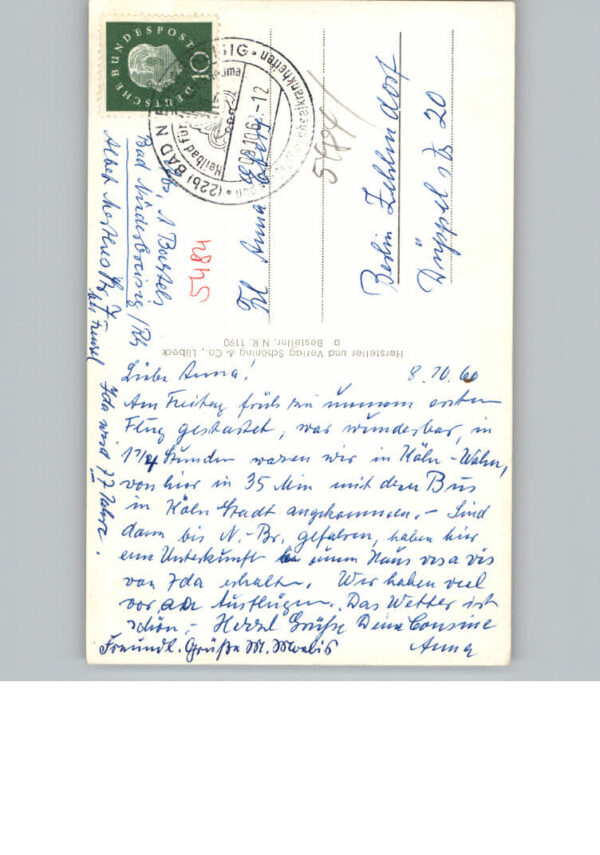 DEUTSCHE BUNDESPOST
10
(22b) BAD N SIG
Heilbad für
08.10.6 -12
Frl. Anna
Berlin Zehlendorf
Düppelstr 20
5484
5484
Bad Niederbreisig / Rh
bei Ida wird 77 Jahre.
Hersteller und Verlag Schöning & Co., Lübeck
a Bestellnr. N.R. 1190
Liebe Anna! 8.10.60
Am Freitag früh zu unserem ersten
Flug gestartet, war wunderbar, in
1 1/4 Stunden waren wir in Köln-Wahn,
von hier in 35 Min mit dem Bus
in Köln Stadt angekommen. - Sind
dann bis N.-Br. gefahren, haben hier
eine Unterkunft einem Haus vis a vis
von Ida erhalten. Wir haben viel
vor, an Ausflügen. Das Wetter ist
schön. - Herzl Grüße Deine Cousine
Anna
Freundl. Grüße M.